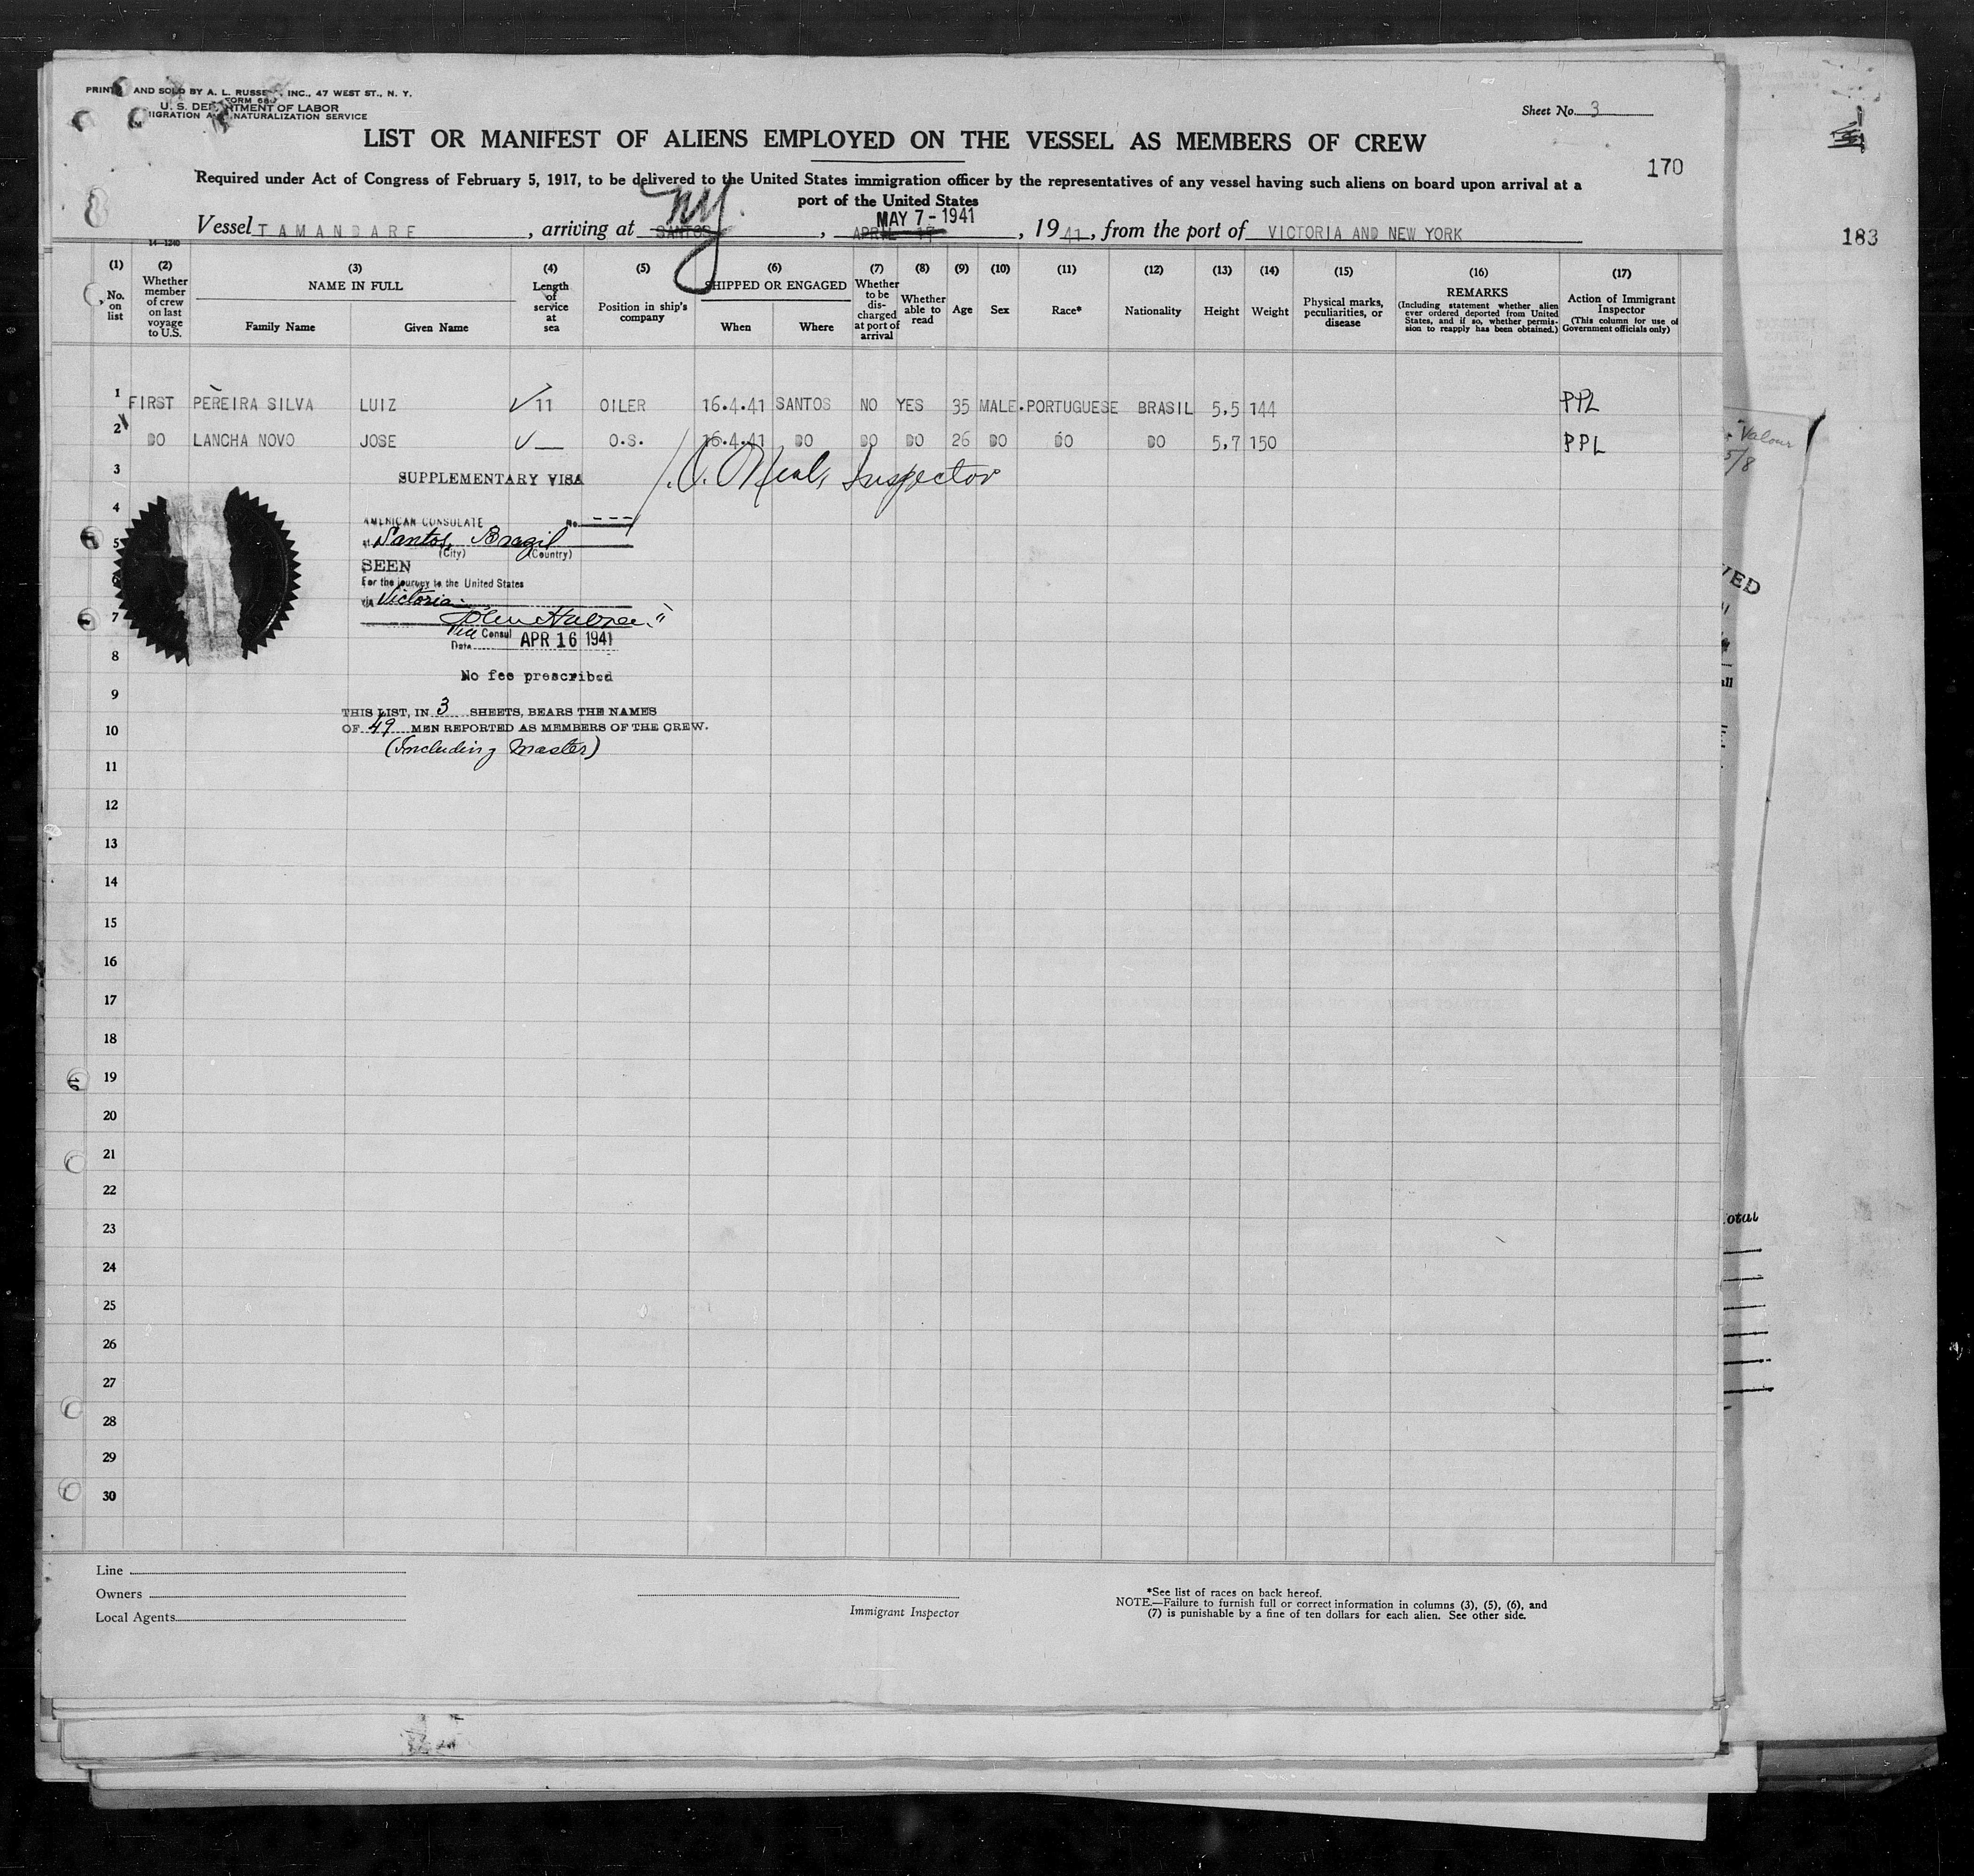 AND SOLD BY A. L. RUSSE INC., 47 WEST ST., N. Y.
FORM 680
U. S. DEPARTMENT OF LABOR
IMMIGRATION AND NATURALIZATION SERVICE
Sheet No. 3
LIST OR MANIFEST OF ALIENS EMPLOYED ON THE VESSEL AS MEMBERS OF CREW
170
Required under Act of Congress of February 5, 1917, to be delivered to the United States immigration officer by the representatives of any vessel having such aliens on board upon arrival at a
port of the United States
NY.
MAY 7 - 1941
Vessel TAMANDARE, arriving at SANTOS, APRIL 17, 1941, from the port of VICTORIA AND NEW YORK
183
14-1240
(1) No. on list
(2) Whether member of crew on last voyage to U.S.
(3) NAME IN FULL
Family Name Given Name
(4) Length of service at sea
(5) Position in ship's company
(6) SHIPPED OR ENGAGED
When Where
(7) Whether to be discharged at port of arrival
(8) Whether able to read
(9) Age
(10) Sex
(11) Race*
(12) Nationality
(13) Height
(14) Weight
(15) Physical marks, peculiarities, or disease
(16) REMARKS
(Including statement whether alien ever ordered deported from United States, and if so, whether permission to reapply has been obtained.)
(17) Action of Immigrant Inspector
(This column for use of Government officials only)
1 FIRST PEREIRA SILVA LUIZ √ 11 OILER 16.4.41 SANTOS NO YES 35 MALE. PORTUGUESE BRASIL 5.5 144 PPL
2 DO LANCHA NOVO JOSE √ — O.S. 16.4.41 DO DO DO 26 DO DO DO 5.7 150 PPL
3 SUPPLEMENTARY VISA
Inspector
4
AMERICAN CONSULATE No. ---
5 at Santos, Brazil
(City) (Country)
SEEN
6 For the journey to the United States
via Victoria
7
Vice Consul
Date APR 16 1941
8
No fee prescribed
9
THIS LIST, IN 3 SHEETS, BEARS THE NAMES
10 OF 49 MEN REPORTED AS MEMBERS OF THE CREW.
(Including Master)
11
12
13
14
15
16
17
18
19
20
21
22
23
24
25
26
27
28
29
30
Line
Owners
Local Agents
Immigrant Inspector
*See list of races on back hereof.
NOTE.—Failure to furnish full or correct information in columns (3), (5), (6), and
(7) is punishable by a fine of ten dollars for each alien. See other side.
Valour
5/8
VED
otal